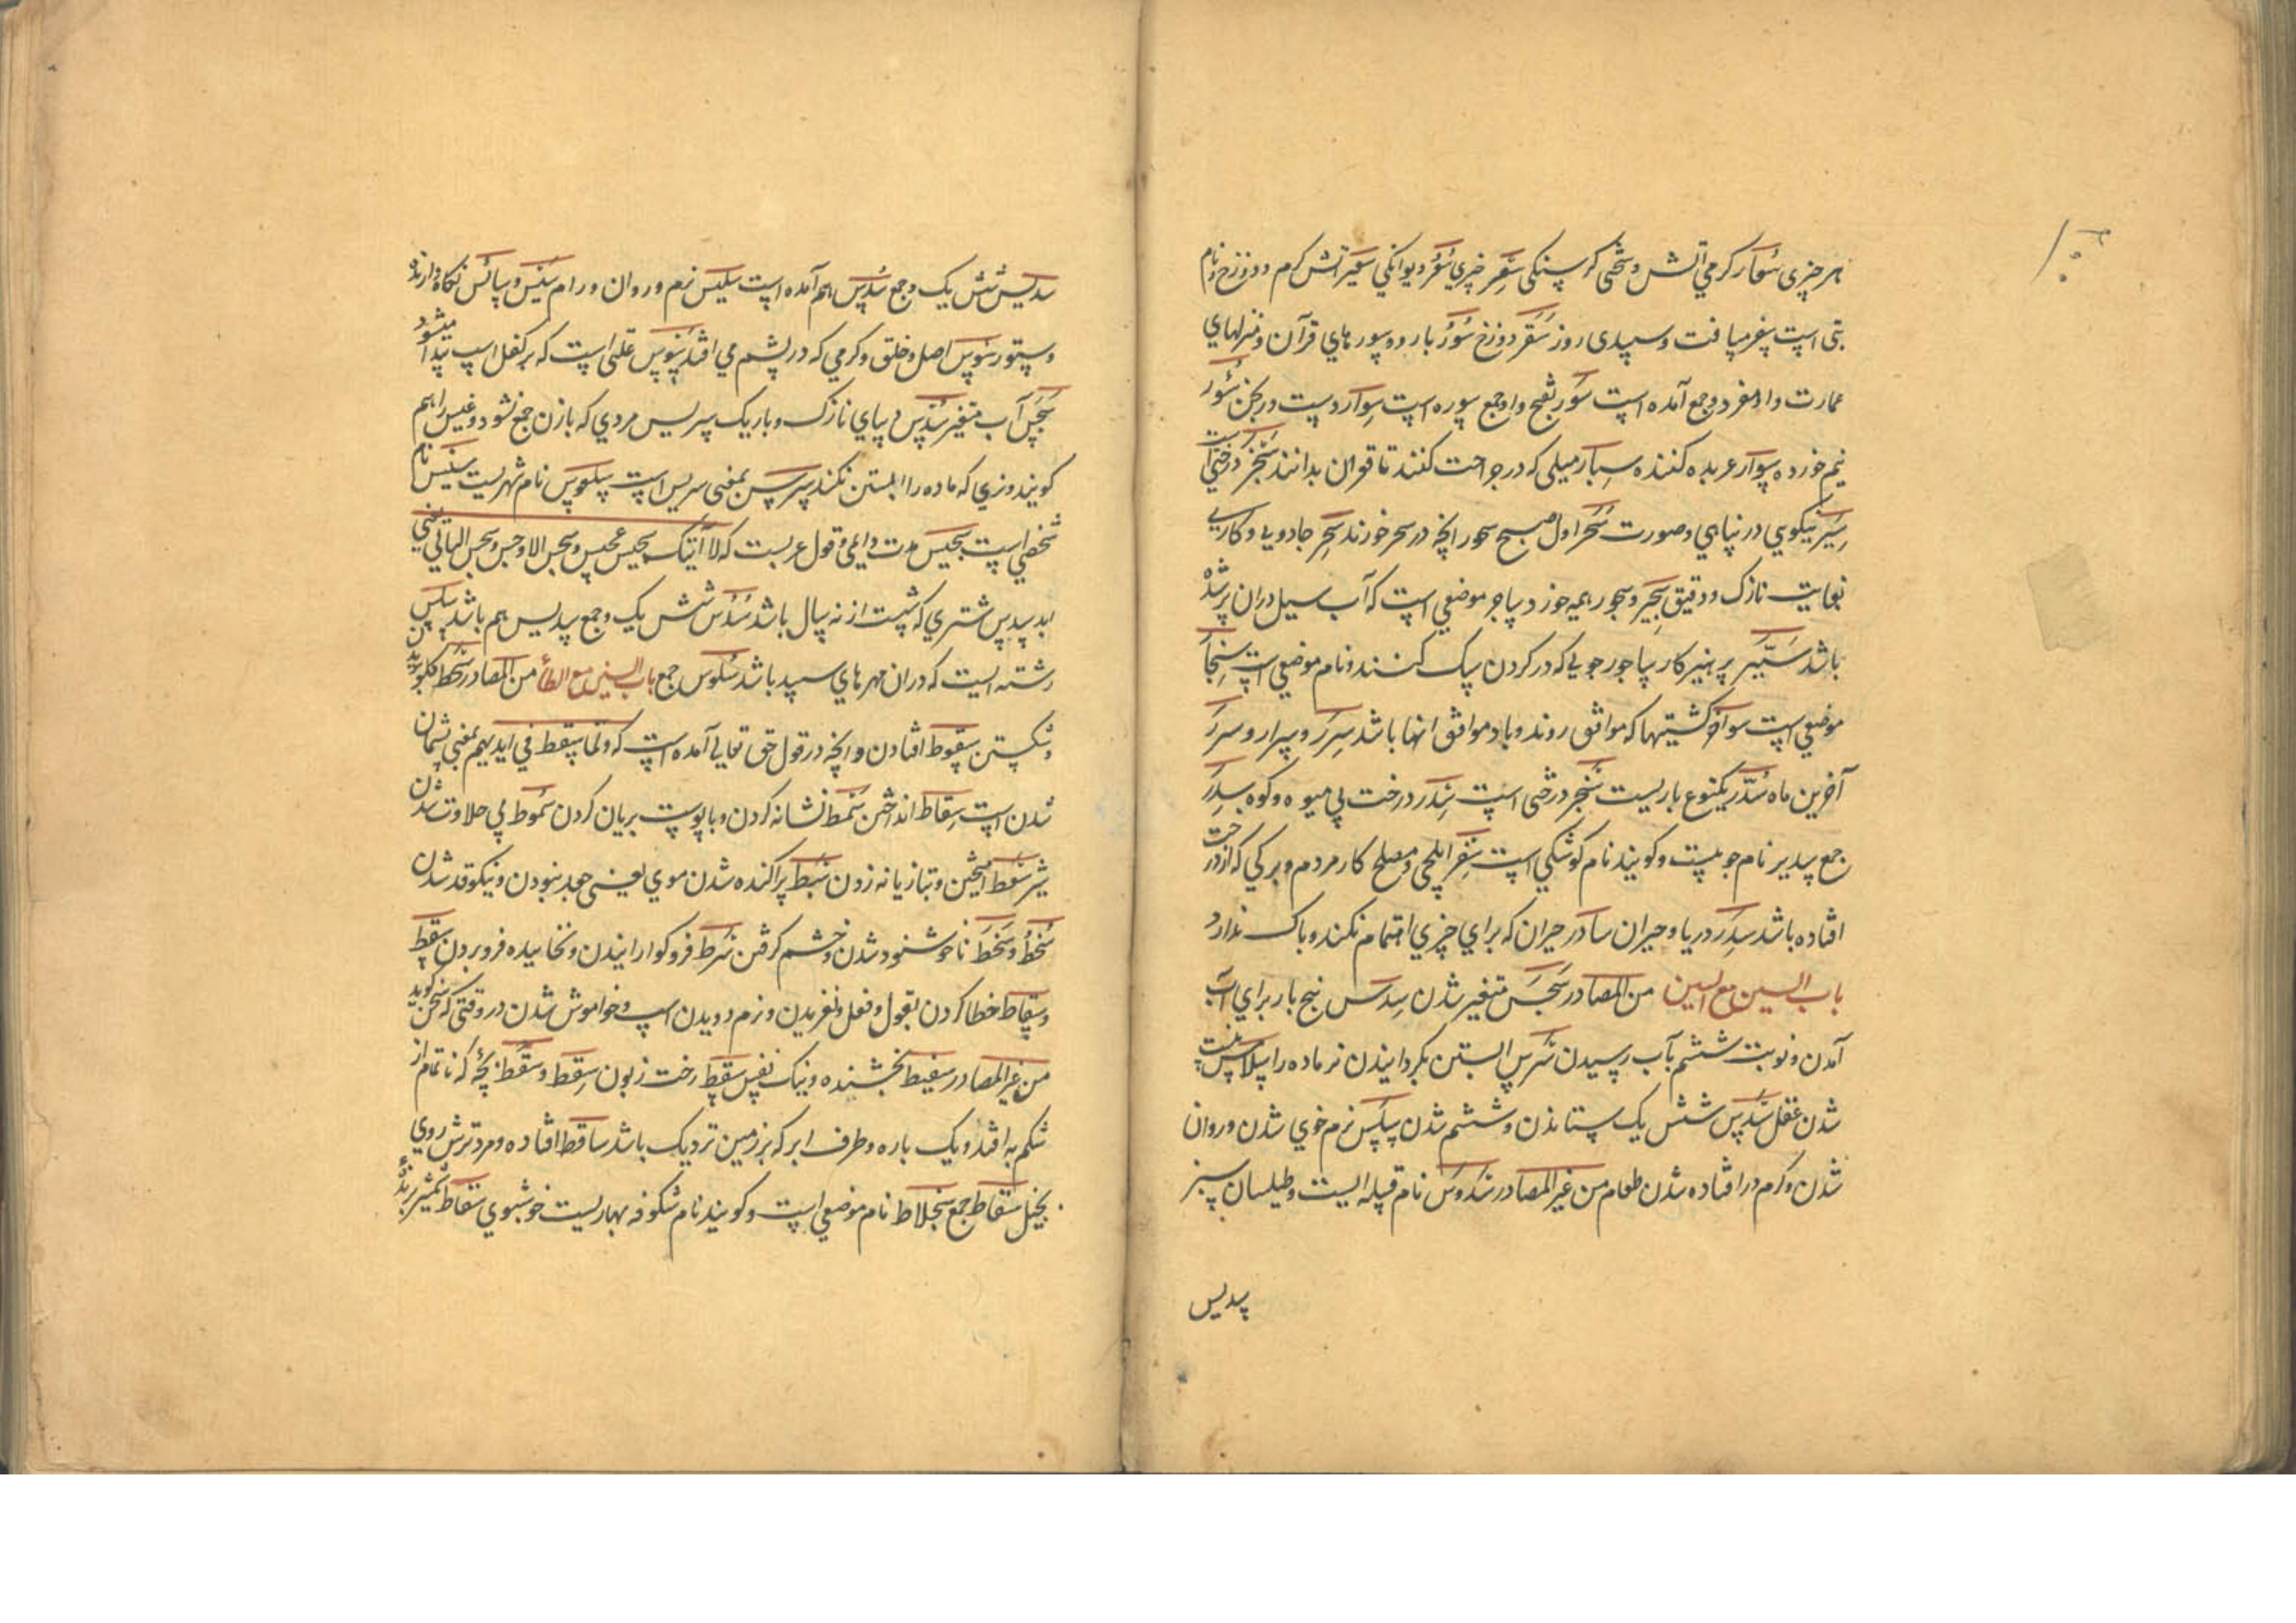 هر چیزی سُعار گرمی آتش و سختی گرسنگی سعر چیزی سُعُر دیوانگی سعیر آتش گرم و دوزخ و نام
بتی است سفر مسافت و سپیدی روز سَقَر دوزخ سُوْر باره و سورهای قرآن و منزلهای
عمارت و او مفرد و جمع آمده است سُوَر بفتح واو جمع سوره است سِوار دست ورنجن سُؤر
نیم خورده سوار عربده کننده سِبار میلی که در جراحت کنند تا قعر آن بدانند سَخبَر درختی است
سِبر نیکویی در نباهی و صورت سَحَر اول صبح سحور آنچه در سحر خورند سِحر جادویی و کاری
بغایت نازک و دقیق سجیر و سجور هیمه خورد ساجر موضعی است که آب سیل دران پر شده
باشد ستّیر پرهیزکار ساجور چوبی که در گردن سگ کنند و نام موضعی است سنجار
موضعی است سوافر کشتیها که موافق روند و باد موافق آنها باشد سِرَر و سرار و سرر
آخرین ماه سُدّر یکنوع بازیست سَخبر درختی است سِدر درخت بی میوه و کوه سِدَر
جمع سدیر نام جوییست و گویند نام کوشکی است سفیر ایلچی و مصلح کار مردم و برگی که از درخت
افتاده باشد سَدِر دریا و حیران سادر حیران که برای چیزی اهتمام نکند و باک ندارد
باب السین مع السین من المصادر سَجَس متغیر شدن سِدس پنج بار برای آب
آمدن و نوبت ششم بآب رسیدن سَرَس آبستن نگردانیدن نر ماده را سلاس نیست
شدن عقل سَدس شش یک ستاندن و ششم شدن سلس نرم خوی شدن و روان
شدن و کرم در افتاده شدن طعام من غیر المصادر سدوس نام قبیله ایست و طیلسان سبز
سدیس
سدیس شش یک و جمع سُدُس هم آمده است سلیس نرم و روان و رام سَئیس و سائس نگاه دارنده
و ستور سوس اصل و خلق و کرمی که در پشم می افتد سَوَس علتی است که بر کفل اسپ پیدا میشود
سَجَس آب متغیر سُندس دیبای نازک و باریک سریس مردی که با زن جمع نشود و عنین را هم
گویند و نری که ماده را آبستن نکند سرس بمعنی سریس است سلعوس نام شهریست سنبس نام
شخصی است سجیس مدت دایمی و قول عربست که لا آتیک سجیس عجیس و سجیس الاوجس و سجیس اللیالی یعنی
ابد سدس شتری که شست از نه سال باشد سُدُس شش یک و جمع سدیس هم باشد سلس
رشته ایست که دران مهرهای سپید باشد سُلُوس جمع باب السین مع الطاء من المصادر سَحط گلو بریدن
و شکستن سقوط افتادن و آنچه در قول حق تعالی آمده است که ولما سقط فی ایدیهم بمعنی پشیمان
شدن است سِقاط انداختن سَمط نشانه کردن و با پوست بریان کردن سُموط بی حلاوت شدن
شیر سَوط آمیختن و تبازیانه زدن سَبَط پراکنده شدن موی یعنی جعد نبودن و نیکو قد شدن
سُخط و سَخَط ناخوشنود شدن و خشم گرفتن سَرط فرو گوارانیدن و نخاییده فرو بردن سقط
و سِقاط خطا کردن بقول و فعل و لغزیدن و نرم دویدن اسپ و خواموش شدن در وقتی که سخن گوید
من غیر المصادر سفیط بخشنده و نیک نفس سَقَط رخت زبون سِقط و سُقط بچهٔ که ناتمام از
شکم به افتد و یک باره و طرف ابر که بزمین نزدیک باشد ساقط افتاده و مرد ترش روی
بخیل سُقاط جمع سجلاط نام موضعی است و گویند نام شکوفه بهاریست خوشبوی سَقّاط شمشیر برنده